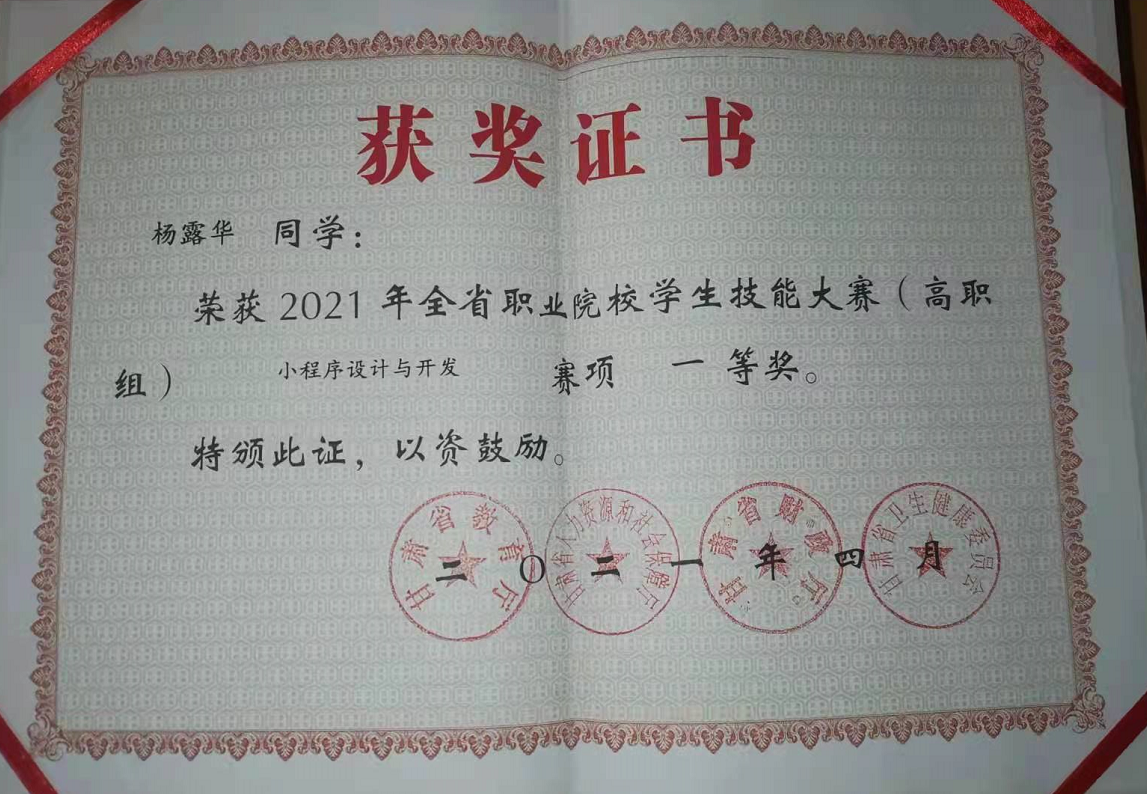 获奖证书
杨露华 同学：
荣获 2021 年全省职业院校学生技能大赛（高职
组） 小程序设计与开发 赛项 一 等奖。
特颁此证，以资鼓励。
甘肃省教育厅
甘肃省人力资源和社会保障厅
甘肃省财政厅
甘肃省卫生健康委员会
二〇二一年四月